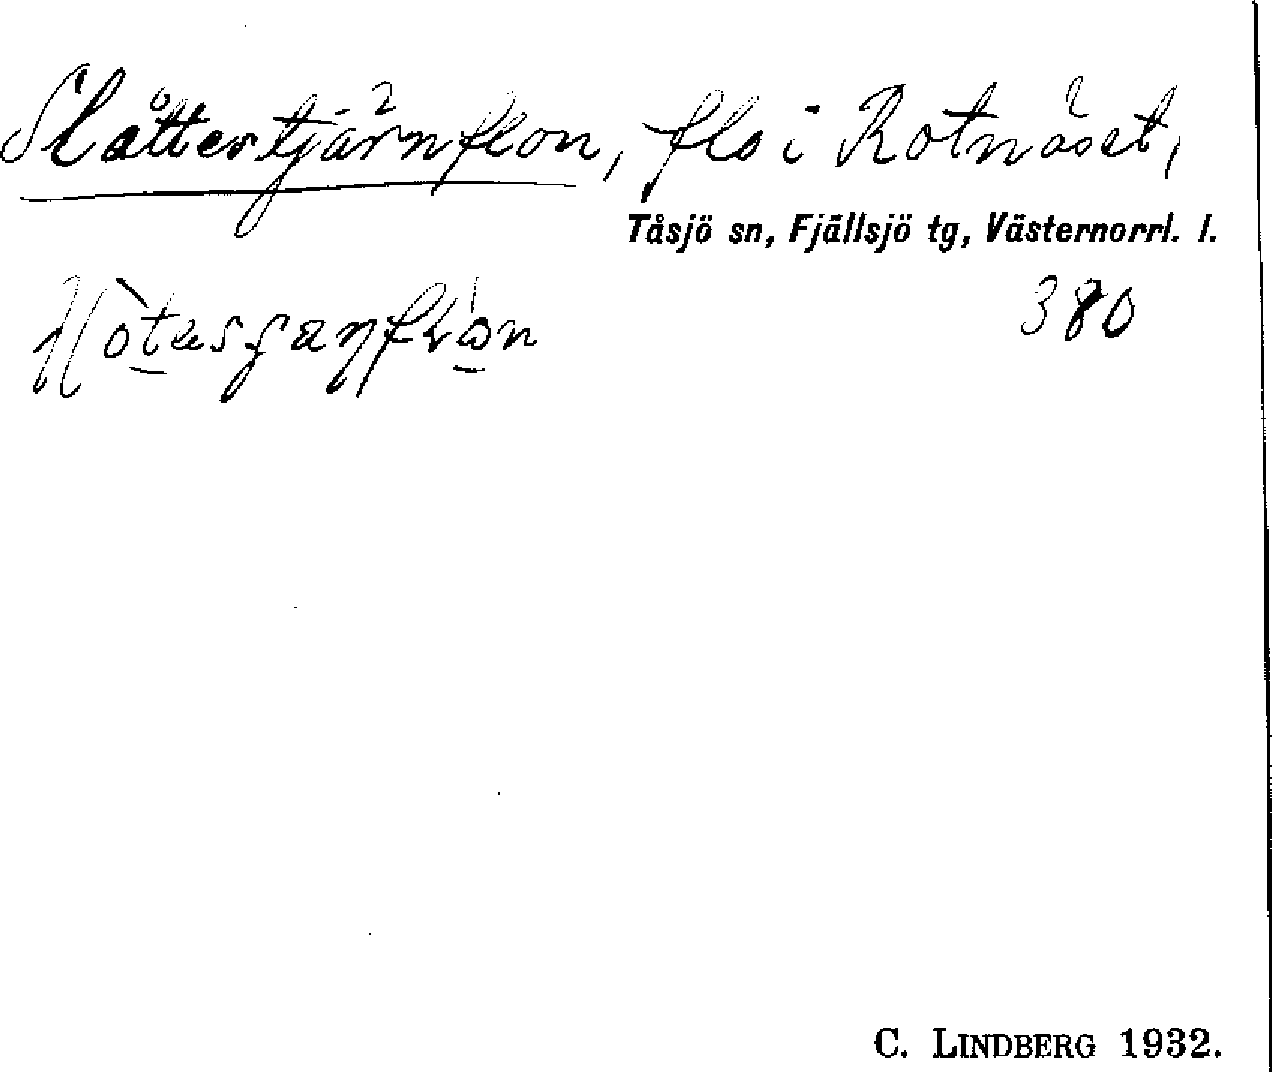 Slåttertjärnflon, flo i Rotnäset,
Tåsjö sn, Fjällsjö tg, Västernorrl. l.
380
C. LINDBERG 1932.